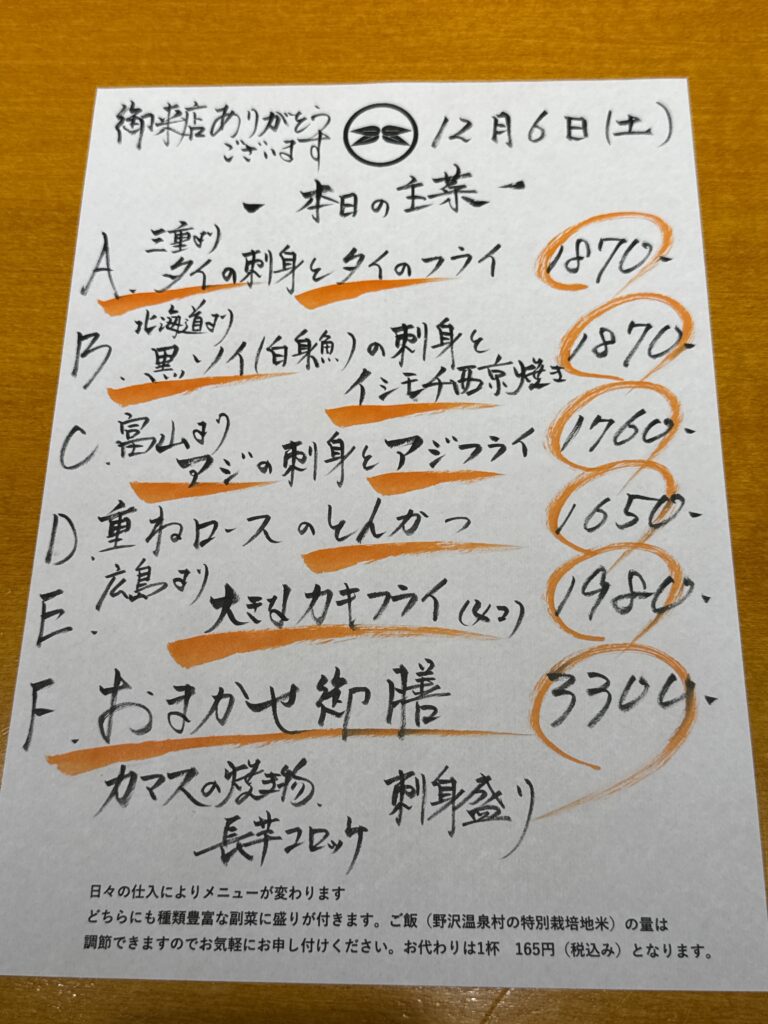 御来店ありがとう
ございます
12月6日(土)
- 本日の主菜 -
A. 三重より
タイの刺身とタイのフライ 1870-
B. 北海道より
黒ソイ(白身魚)の刺身と
イシモチ西京焼き 1870-
C. 富山より
アジの刺身とアジフライ 1760-
D. 重ねロースのとんかつ 1650-
E. 広島より
大きなカキフライ(4コ) 1980-
F. おまかせ御膳 3300-
カマスの焼き物、 刺身盛り
長芋コロッケ
日々の仕入によりメニューが変わります
どちらにも種類豊富な副菜に盛りが付きます。ご飯（野沢温泉村の特別栽培地米）の量は
調節できますのでお気軽にお申し付けください。お代わりは1杯　165円（税込み）となります。